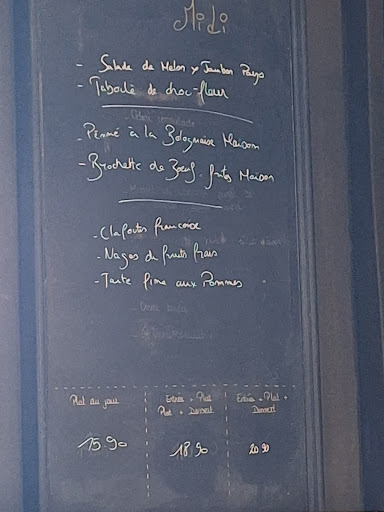 Midi
- Salade de Melon & Jambon Pays
- Taboulé de chou-fleur
- Penné à la Bolognaise Maison
- Brochette de Bœuf. frites Maison
- Clafoutis framboise
- Nages de fruits frais
- Tarte fine aux Pommes
Plat du jour
15.90
Entrée + Plat
Plat + Dessert
18.90
Entrée + Plat +
Dessert
20.90